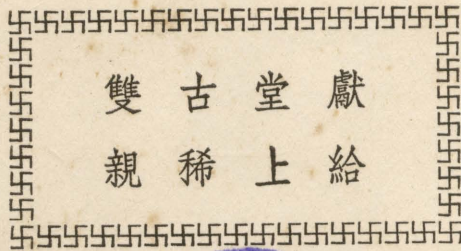 獻給
堂上
古稀
雙親